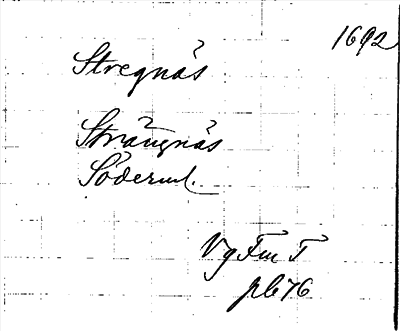 1692
Stregnäs
Strängnäs
Söderml.
Vg Fm T
pl 76